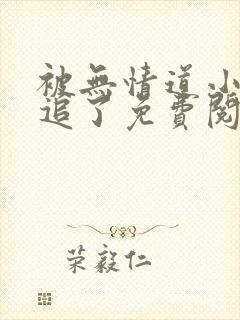 被無情道小
追了免費閱
荣毅仁